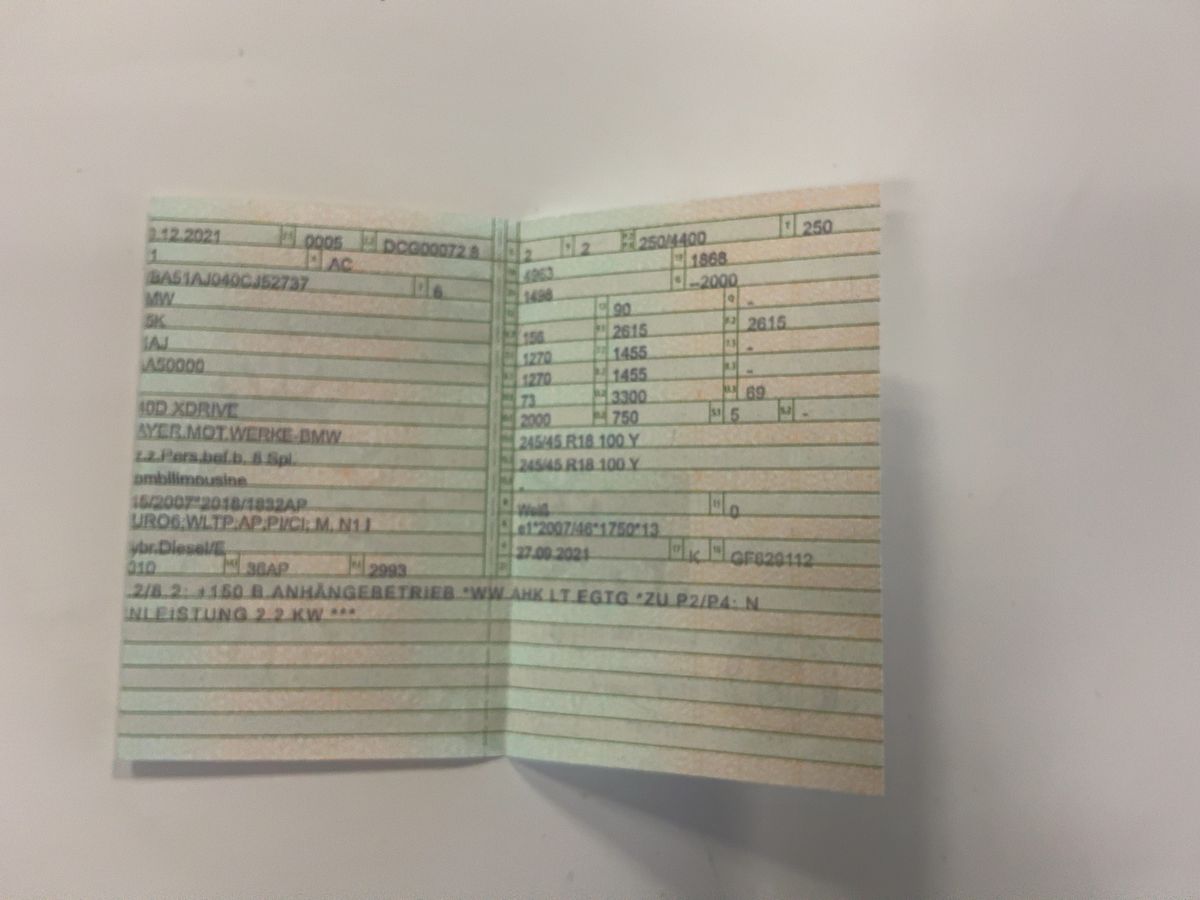 .12.2021 0005 DCG00072 8
1 AC
BA51AJ040CJ52737 6
MW
5K
1AJ
A50000
40D XDRIVE
AYER.MOT.WERKE-BMW
z.z.Pers.bef.b. 8 Spl.
ombilimousine
15/2007*2018/1832AP
URO6;WLTP;AP;PI/CI; M, N1 I
ybr.Diesel/E
010 36AP 2993
2 2 250/4400 250
4963 1868
1498 –2000
90 -
156 2615 2615
1270 1455 -
1270 1455 -
73 3300 69
2000 750 5 -
245/45 R18 100 Y
245/45 R18 100 Y
-
Weiß 0
e1*2007/46*1750*13
27.09.2021 K GF629112
.2/8.2: +150 B.ANHÄNGEBETRIEB *WW.AHK LT.EGTG *ZU P2/P4: N
NLEISTUNG 2.2 KW ***